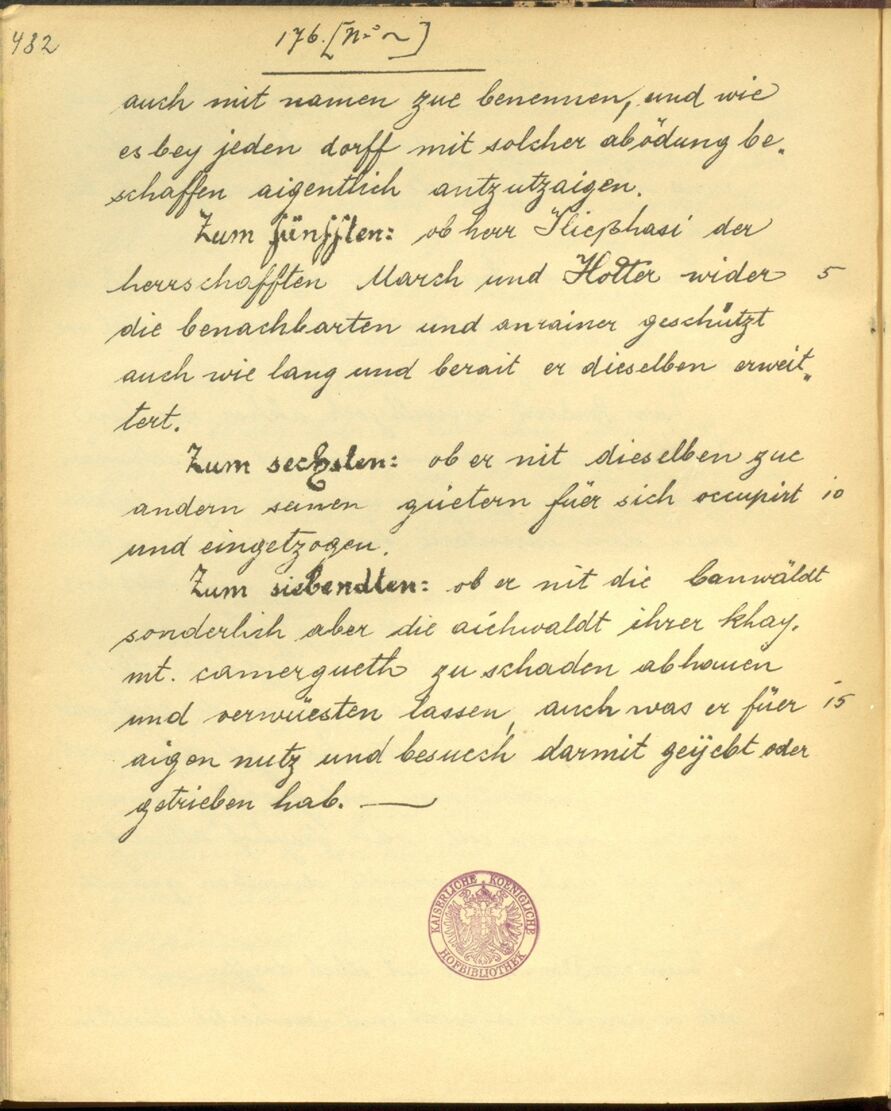 482
176. [N:o ~]
auch mit namen zue benennen, und wie
es bey jeden dorff mit solcher abödung be„
schaffen aigentlich antzutzaigen.
Zum fünfften: ob herr der
herrschafften March und Hotter wider 5
die benachbarten und anrainer geschützt
auch wie lang und berait er dieselben erweit„
tert.
Zum sechsten: ob er nit dieselben zue
andern seinen güetern füer sich occupirt 10
und eingetzogen.
Zum siebendten: ob er nit die banwäldt
sonderlich aber die aichwaldt ihrer khay.
mt. camergueth zu schaden abhauen
und verwüesten lassen, auch was er füer 15
aigen nutz und besuech darmit geÿebt oder
getrieben hab. —
KAISERLICHE KOENIGLICHE
HOFBIBLIOTHEK